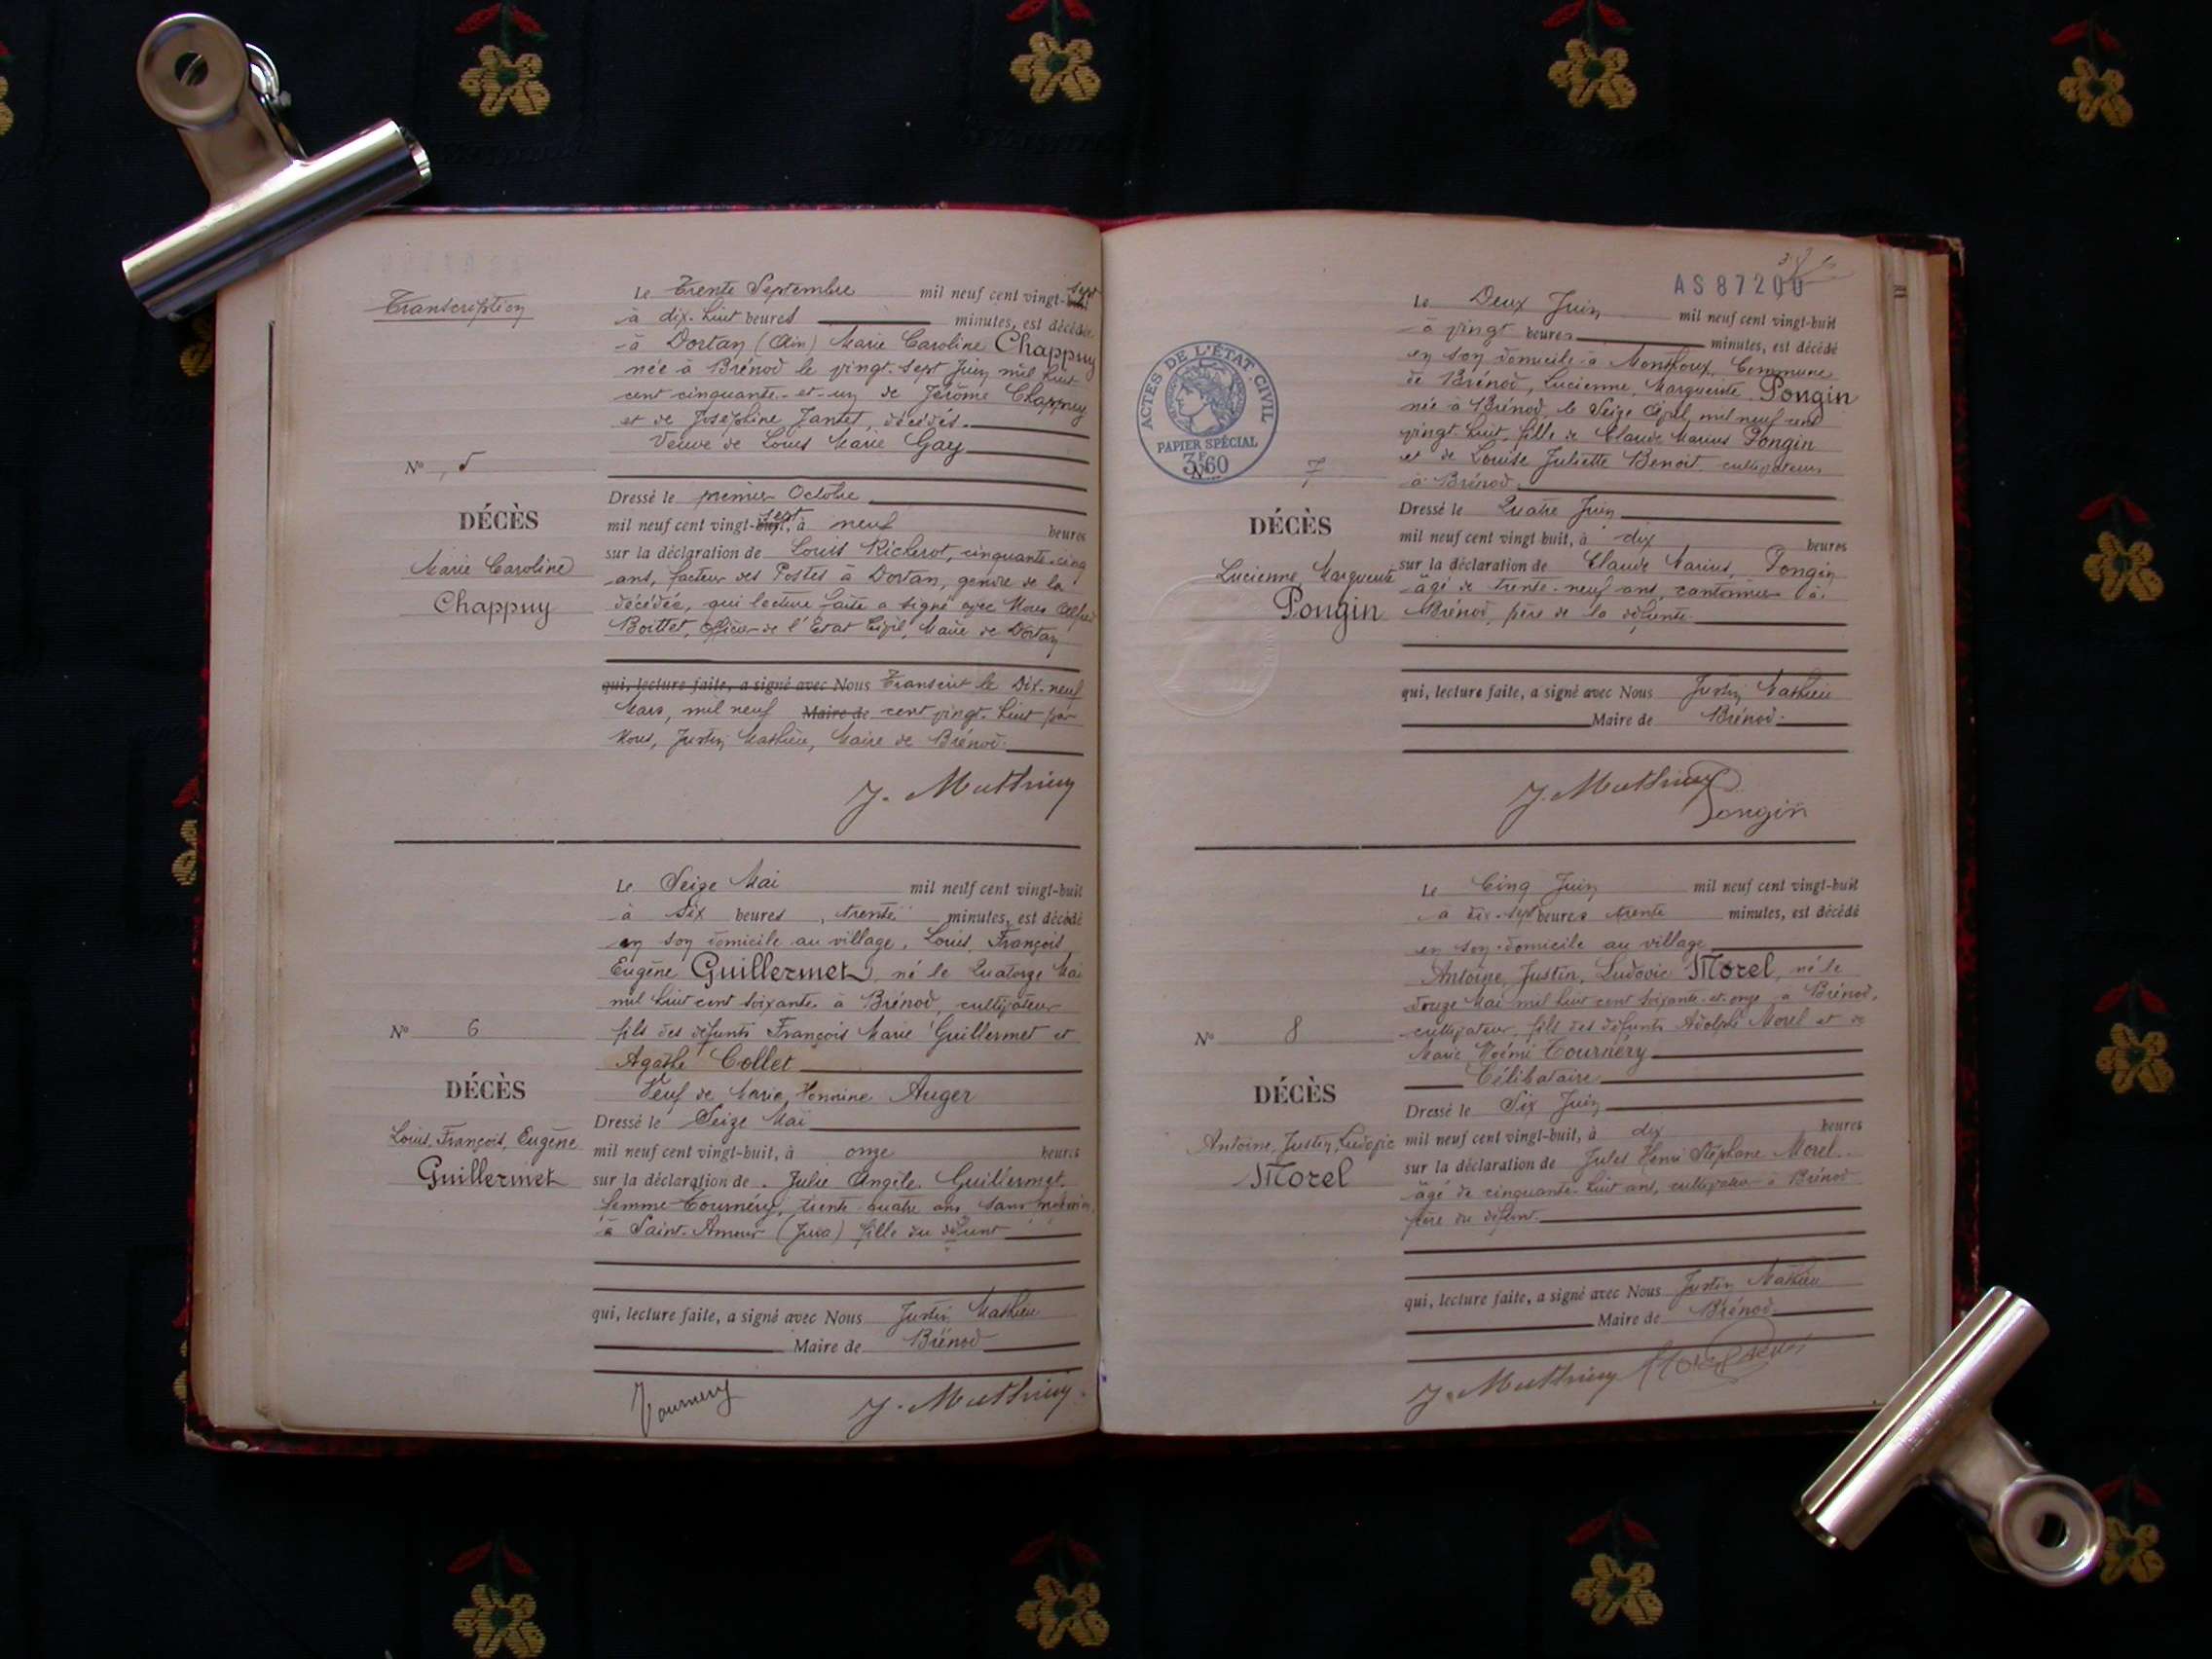 Transcription
Le Trente Septembre mil neuf cent vingt-huit sept
à dix-huit heures minutes, est décédée
à Dortan (Ain) Marie Caroline Chappuy
née à Brénod le vingt-sept Juin mil huit
cent cinquante-et-un de Jérôme Chappuy
et de Joséphine Jantet, décédés.
Veuve de Louis Marie Gay
N° 5
DÉCÈS
Marie Caroline
Chappuy
Dressé le premier Octobre
mil neuf cent vingt-huit, sept à neuf heures
sur la déclaration de Louis Richerot, cinquante-cinq
ans, facteur des Postes à Dortan, gendre de la
décédée, qui lecture faite a signé avec Nous Alfred
Boittet, officier de l'Etat Civil, Maire de Dortan
qui, lecture faite, a signé avec Nous Transcrit le Dix-neuf
Mars, mil neuf Maire de cent vingt-huit par
Nous, Justin Mathieu, Maire de Brénod.
J. Mathieu
Le Seize Mai mil neuf cent vingt-huit
à six heures, trente minutes, est décédé
en son domicile au village, Louis, François
Eugène Guillermet, né le Quatorze Mai
mil huit cent soixante à Brénod, cultivateur
fils des défunts François Marie Guillermet et
Agathe Collet
Veuf de Marie Auger
N° 6
DÉCÈS
Louis, François, Eugène
Guillermet
Dressé le Seize Mai
mil neuf cent vingt-huit, à onze heures
sur la déclaration de Julie Angèle Guillermet
femme Tournéry, trente-quatre ans, sans
à Saint-Amour (Jura) fille du défunt
qui, lecture faite, a signé avec Nous Justin Mathieu
Maire de Brénod
Tournery J. Mathieu
AS 87200
ACTES DE L'ÉTAT CIVIL
PAPIER SPÉCIAL
3F60
Le Deux Juin mil neuf cent vingt-huit
à vingt heures minutes, est décédé
en son domicile à Commune
de Brénod, Lucienne, Marguerite Pongin
née à Brénod, le Seize Avril mil neuf cent
vingt-huit, fille de Claude Marius Pongin
et de Louise Juliette Benoit cultivateurs
à Brénod.
N° 7
DÉCÈS
Lucienne, Marguerite
Pongin
Dressé le Quatre Juin
mil neuf cent vingt-huit, à dix heures
sur la déclaration de Claude Marius, Pongin
âgé de trente-neuf ans, cantonnier à
Brénod, père de la défunte.
qui, lecture faite, a signé avec Nous Justin Mathieu
Maire de Brénod.
J. Mathieu
Pongin
Le Cinq Juin mil neuf cent vingt-huit
à dix-sept heures trente minutes, est décédé
en son domicile au village
Antoine, Justin, Ludovic Morel, né le
douze Mai mil huit cent soixante-et-onze à Brénod,
cultivateur, fils des défunts Adolphe Morel et de
Marie Noémi Tournéry
Célibataire
N° 8
DÉCÈS
Antoine, Justin, Ludovic
Morel
Dressé le Six Juin
mil neuf cent vingt-huit, à dix heures
sur la déclaration de Jules Henri Stéphane Morel
âgé de cinquante-huit ans, cultivateur à Brénod
frère du défunt.
qui, lecture faite, a signé avec Nous Justin Mathieu
Maire de Brénod.
J. Mathieu